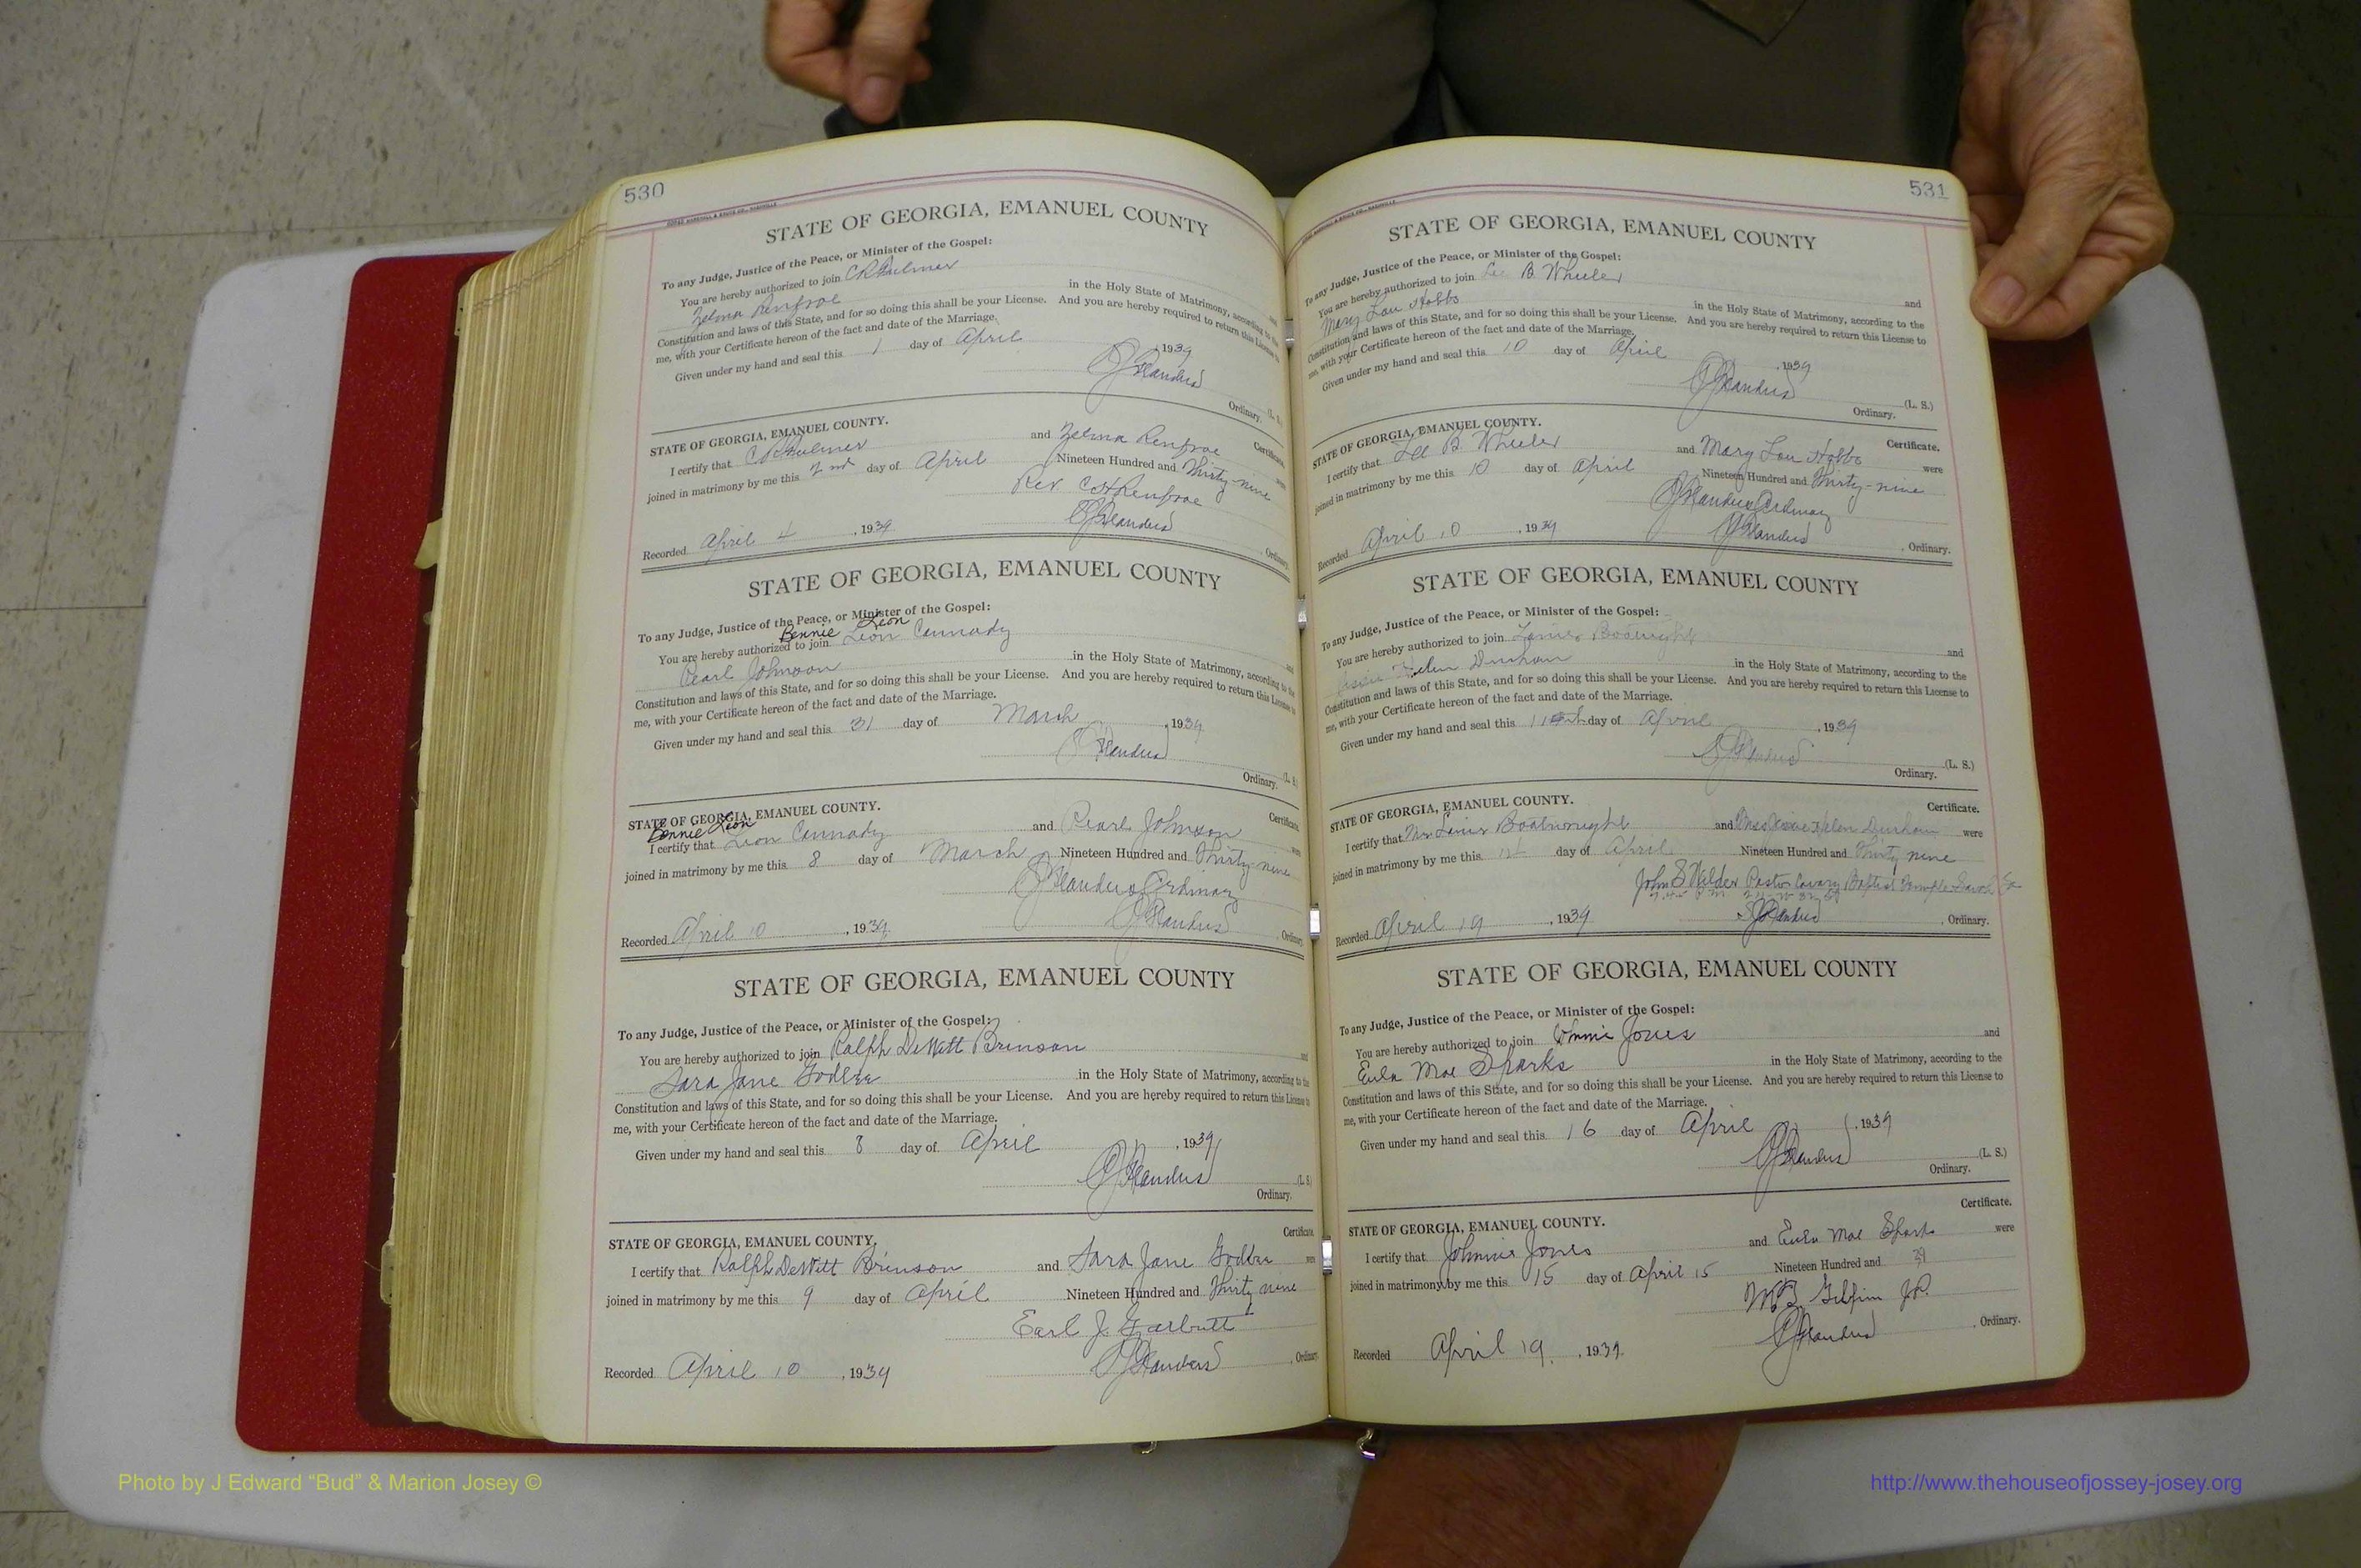 530
STATE OF GEORGIA, EMANUEL COUNTY
To any Judge, Justice of the Peace, or Minister of the Gospel:
You are hereby authorized to join C R Fulmer and
Zelma Renfroe in the Holy State of Matrimony, according to the
Constitution and laws of this State, and for so doing this shall be your License. And you are hereby required to return this License to
me, with your Certificate hereon of the fact and date of the Marriage.
Given under my hand and seal this 1 day of April, 1939
(L. S.)
Ordinary.
STATE OF GEORGIA, EMANUEL COUNTY. Certificate.
I certify that C R Fulmer and Zelma Renfroe were
joined in matrimony by me this 2nd day of April Nineteen Hundred and Thirty-nine
Rev. C H Renfroe
Recorded April 4, 1939 Ordinary.
STATE OF GEORGIA, EMANUEL COUNTY
To any Judge, Justice of the Peace, or Minister of the Gospel:
Bennie Leon
You are hereby authorized to join Leon Cannady and
Pearl Johnson in the Holy State of Matrimony, according to the
Constitution and laws of this State, and for so doing this shall be your License. And you are hereby required to return this License to
me, with your Certificate hereon of the fact and date of the Marriage.
Given under my hand and seal this 31 day of March, 1939
(L. S.)
Ordinary.
STATE OF GEORGIA, EMANUEL COUNTY. Certificate.
Bennie Leon
I certify that Leon Cannady and Pearl Johnson were
joined in matrimony by me this 8 day of March Nineteen Hundred and Thirty-nine
Ordinary
Recorded April 10, 1939. Ordinary.
STATE OF GEORGIA, EMANUEL COUNTY
To any Judge, Justice of the Peace, or Minister of the Gospel:
You are hereby authorized to join Ralph DeWitt Brinson and
Sara Jane Godbee in the Holy State of Matrimony, according to the
Constitution and laws of this State, and for so doing this shall be your License. And you are hereby required to return this License to
me, with your Certificate hereon of the fact and date of the Marriage.
Given under my hand and seal this 8 day of April, 1939
(L. S.)
Ordinary.
STATE OF GEORGIA, EMANUEL COUNTY. Certificate
I certify that Ralph DeWitt Brinson and Sara Jane Godbee were
joined in matrimony by me this 9 day of April Nineteen Hundred and Thirty nine
Earl J. Garbutt
Recorded April 10, 1939 Ordinary
531
STATE OF GEORGIA, EMANUEL COUNTY
To any Judge, Justice of the Peace, or Minister of the Gospel:
You are hereby authorized to join Lee B. Wheeler and
Mary Lou Hobbs in the Holy State of Matrimony, according to the
Constitution and laws of this State, and for so doing this shall be your License. And you are hereby required to return this License to
me, with your Certificate hereon of the fact and date of the Marriage.
Given under my hand and seal this 10 day of April, 1939
(L. S.)
Ordinary.
STATE OF GEORGIA, EMANUEL COUNTY. Certificate.
I certify that Lee B. Wheeler and Mary Lou Hobbs were
joined in matrimony by me this 10 day of April Nineteen Hundred and Thirty-nine
Ordinary
Recorded April 10, 1939 Ordinary.
STATE OF GEORGIA, EMANUEL COUNTY
To any Judge, Justice of the Peace, or Minister of the Gospel:
You are hereby authorized to join Boatwright and
Helen Durham in the Holy State of Matrimony, according to the
Constitution and laws of this State, and for so doing this shall be your License. And you are hereby required to return this License to
me, with your Certificate hereon of the fact and date of the Marriage.
Given under my hand and seal this day of April, 1939
(L. S.)
Ordinary.
STATE OF GEORGIA, EMANUEL COUNTY. Certificate.
I certify that Mr. Boatwright and Miss Helen Durham were
joined in matrimony by me this day of April Nineteen Hundred and Thirty nine
John S Wilder Pastor Baptist Temple
Recorded April 19, 1939 Ordinary.
STATE OF GEORGIA, EMANUEL COUNTY
To any Judge, Justice of the Peace, or Minister of the Gospel:
You are hereby authorized to join Jones and
Eula Mae Sparks in the Holy State of Matrimony, according to the
Constitution and laws of this State, and for so doing this shall be your License. And you are hereby required to return this License to
me, with your Certificate hereon of the fact and date of the Marriage.
Given under my hand and seal this 16 day of April, 1939
(L. S.)
Ordinary.
STATE OF GEORGIA, EMANUEL COUNTY. Certificate.
I certify that Johnnie Jones and Eula Mae Sparks were
joined in matrimony by me this 15 day of April 15 Nineteen Hundred and 39
J.P.
Recorded April 19, 1939. Ordinary.
Photo by J Edward “Bud” & Marion Josey ©
http://www.thehouseofjossey-josey.org